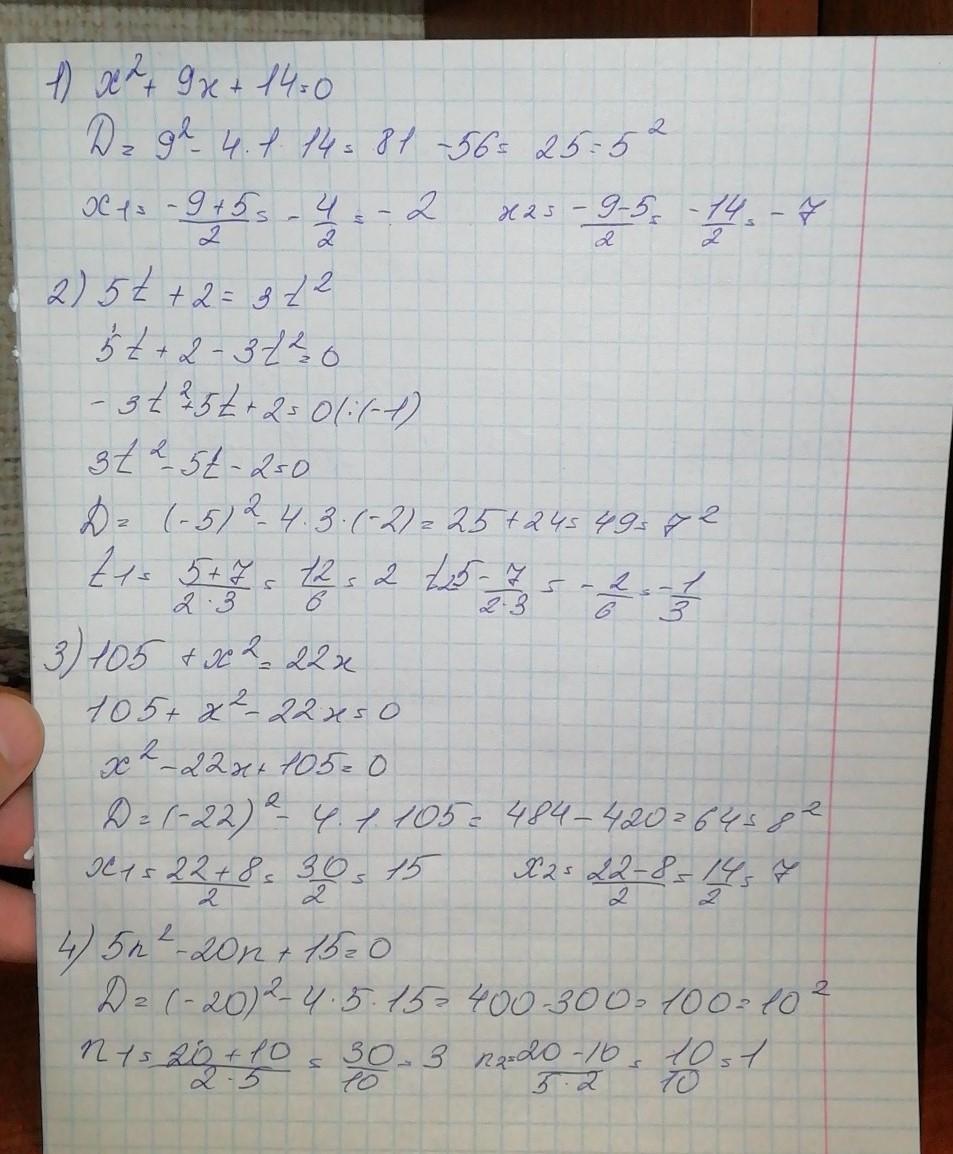 1) x² + 9x + 14 = 0
D = 9² - 4 · 1 · 14 = 81 - 56 = 25 = 5²
x1 = -9+5/2 = -4/2 = -2 x2 = -9-5/2 = -14/2 = -7
2) 5t + 2 = 3t²
5t + 2 - 3t² = 0
-3t² + 5t + 2 = 0 (:(-1)
3t² - 5t - 2 = 0
D = (-5)² - 4 · 3 · (-2) = 25 + 24 = 49 = 7²
t1 = 5+7/2·3 = 12/6 = 2 t2 = 5-7/2·3 = -2/6 = -1/3
3) 105 + x² = 22x
105 + x² - 22x = 0
x² - 22x + 105 = 0
D = (-22)² - 4 · 1 · 105 = 484 - 420 = 64 = 8²
x1 = 22+8/2 = 30/2 = 15 x2 = 22-8/2 = 14/2 = 7
4) 5n² - 20n + 15 = 0
D = (-20)² - 4 · 5 · 15 = 400 - 300 = 100 = 10²
n1 = 20+10/2·5 = 30/10 = 3 n2 = 20-10/5·2 = 10/10 = 1